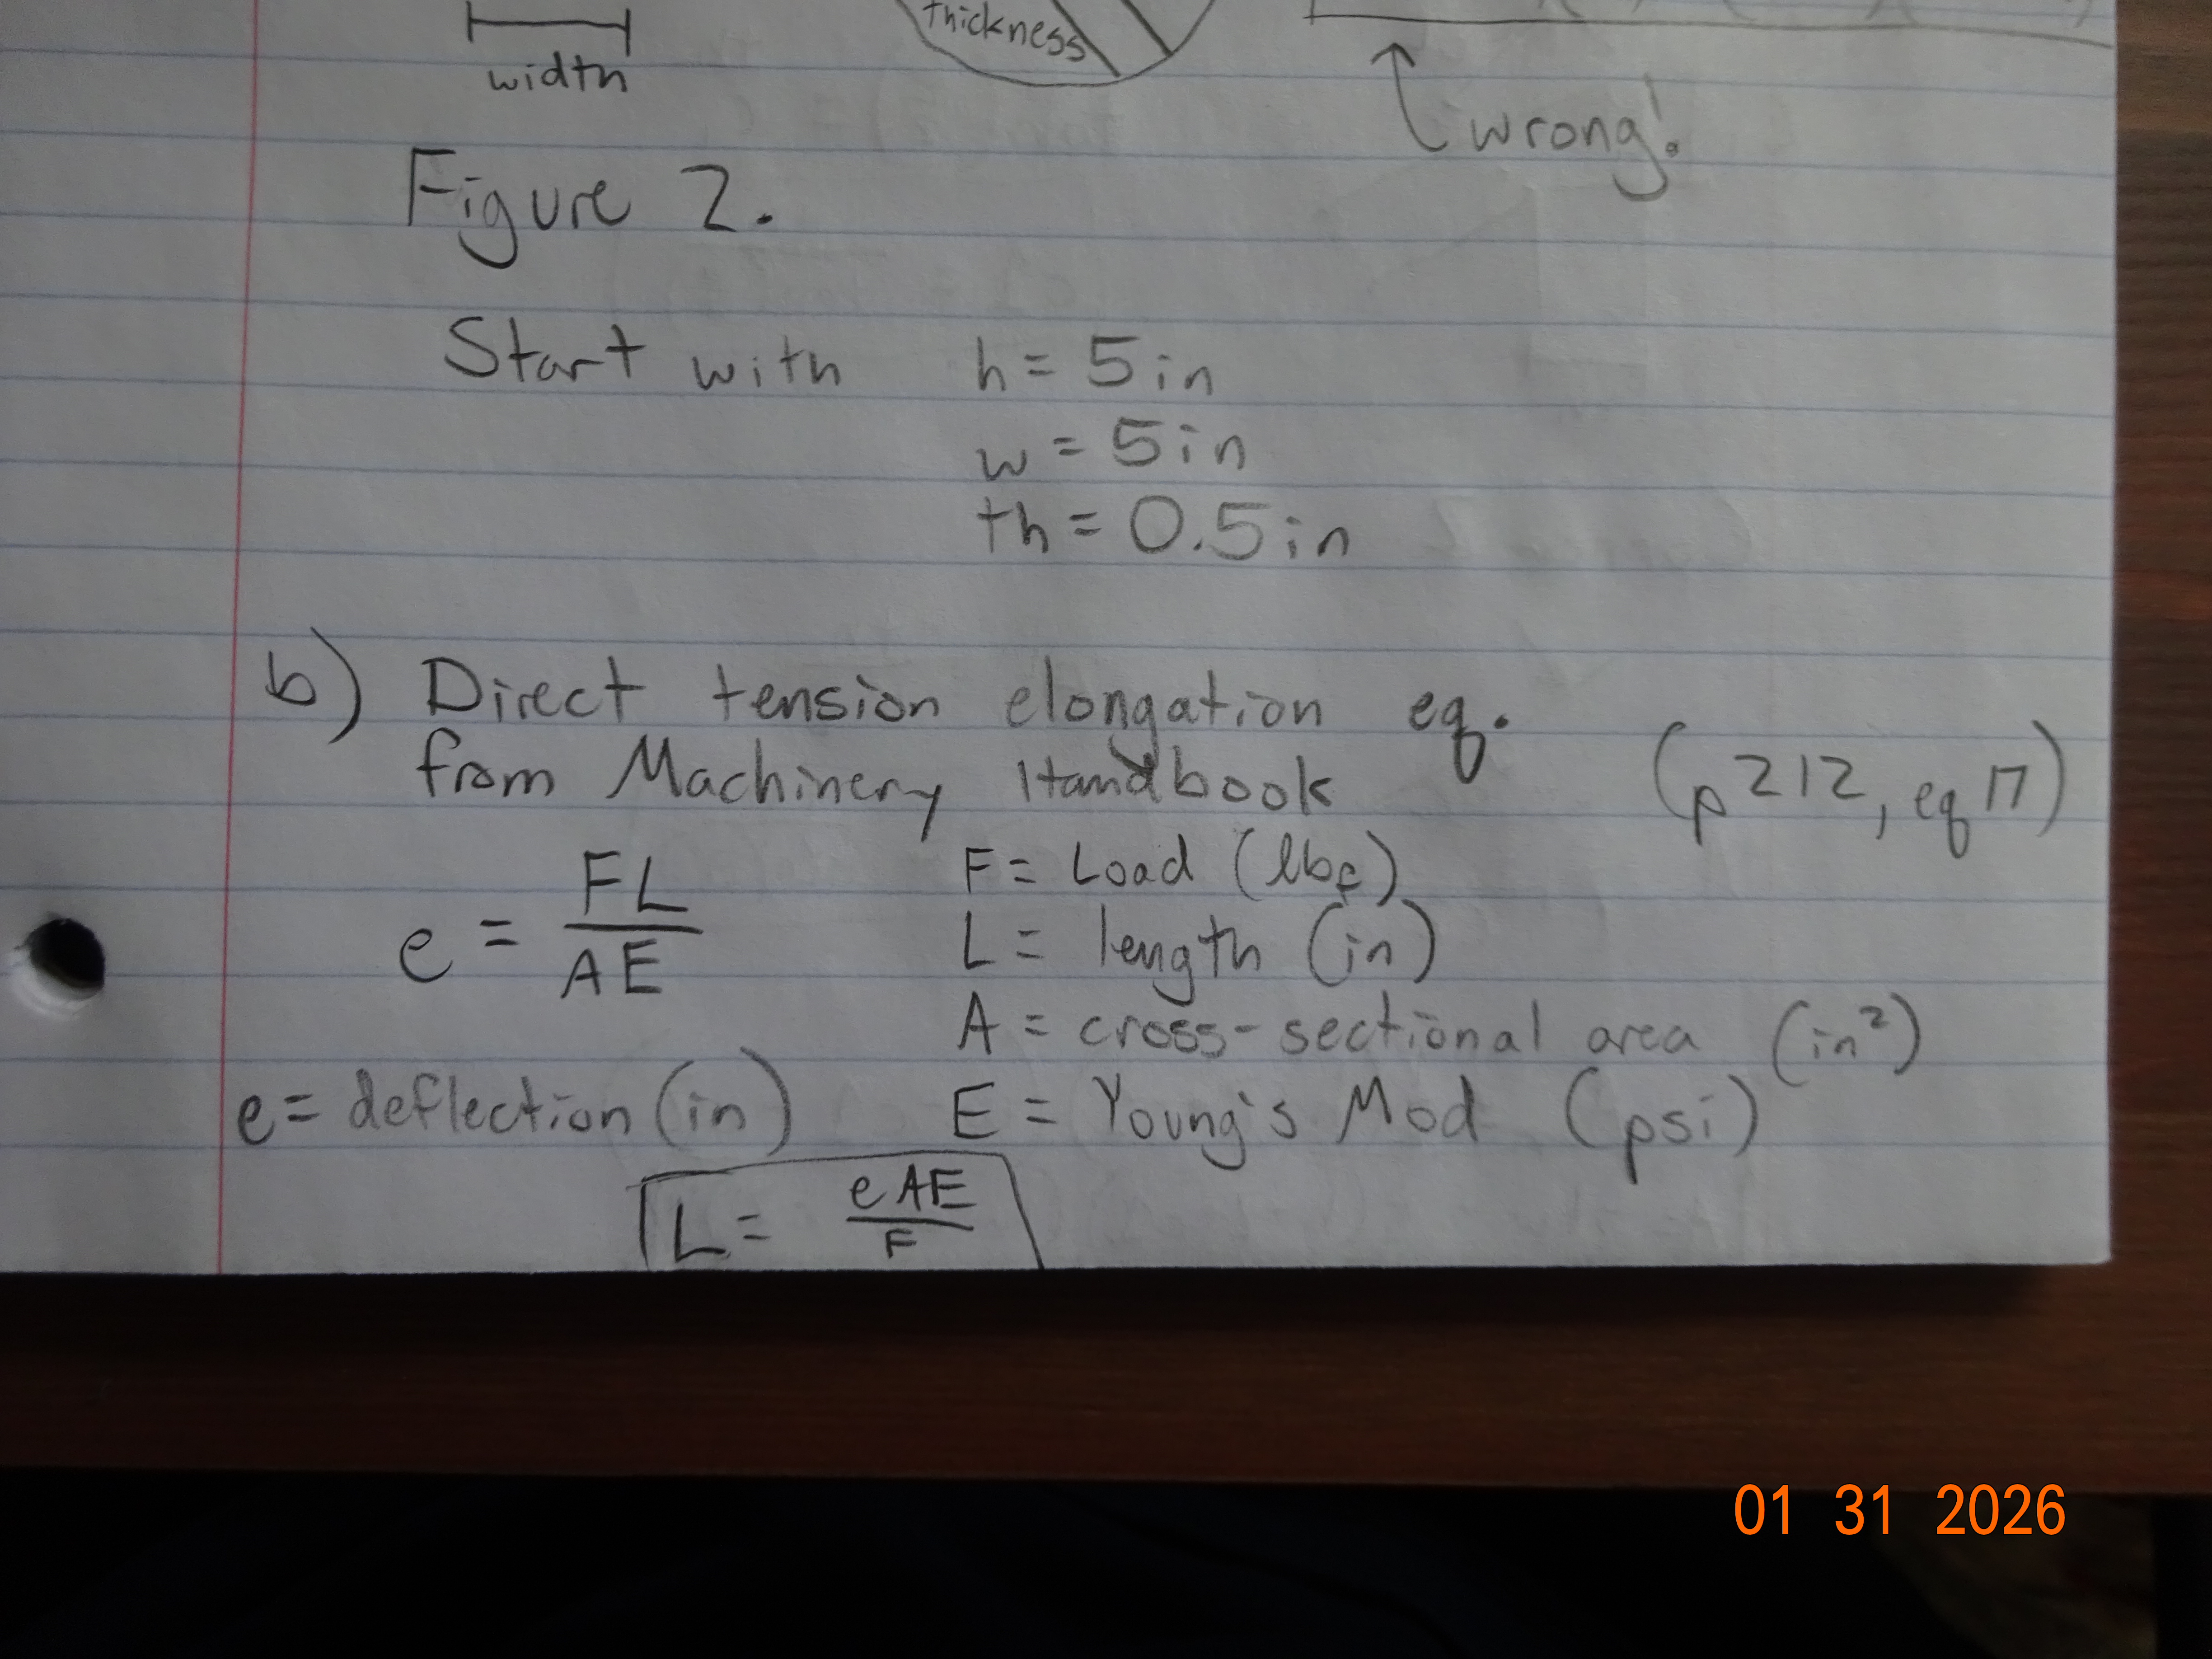 thickness
width
wrong!
Figure 2.
Start with h = 5in
w = 5in
th = 0.5in
b) Direct tension elongation eq.
from Machinery Handbook (p212, eq 17)
e = FL / AE
F = Load (lbf)
L = length (in)
A = cross-sectional area (in²)
e = deflection (in) E = Young's Mod (psi)
L = eAE / F
01 31 2026